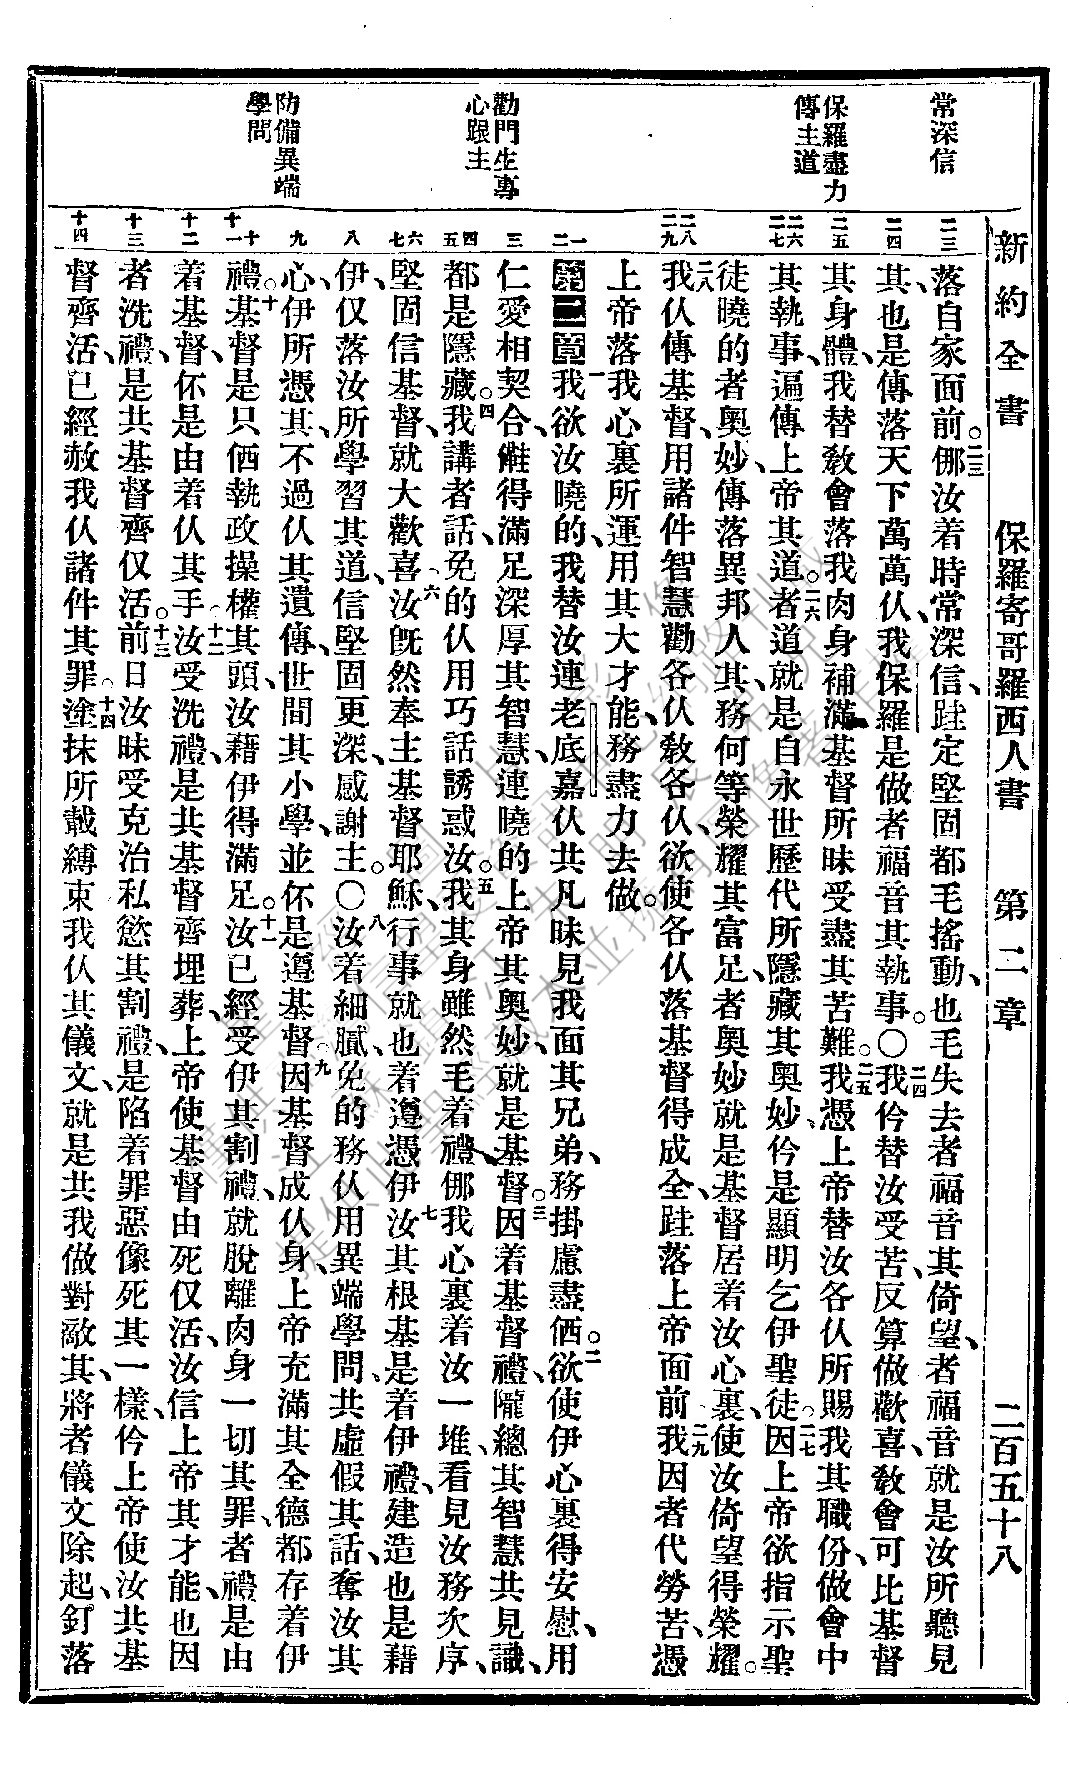 新約全書　保羅寄哥羅西人書　第二章　二百五十八
常深信
保羅盡力
傳主道
勸門生專
心跟主
防備異端
學問
二三
二四
二五
二六
二七
二八
二九
一
二
三
四
五
六
七
八
九
十
十一
十二
十三
十四
落自家面前。二三㑚汝着時常深信、跬定堅固都毛搖動、也毛失去者福音其倚望、者福音就是汝所聽見
其、也是傳落天下萬萬仈、我保羅是做者福音其執事。○二四我仱替汝受苦、反算做歡喜、教會可比基督
其身體、我替教會落我肉身補滿基督所昧受盡其苦難。二五我憑上帝替汝各仈所賜我其職份、做會中
其執事、遍傳上帝其道。二六者道就是自永世歷代所隱藏其奧妙、仱是顯明乞伊聖徒。二七因上帝欲指示聖
徒曉的者奧妙、傳落異邦人其、務何等榮耀其富足、者奧妙就是基督居着汝心裏、使汝倚望得榮耀。
二八我仈傳基督、用諸件智慧勸各仈教各仈、欲使各仈落基督得成全、跬落上帝面前、二九我因者代勞苦、憑
上帝落我心裏所運用其大才能、務盡力去做。
第二章一我欲汝曉的、我替汝連老底嘉仈、共凡昧見我面其兄弟、務掛慮盡価。二欲使伊心裏得安慰、用
仁愛相契合、僆得滿足深厚其智慧、連曉的上帝其奧妙、就是基督。三因着基督禮、隴總其智慧共見識、
都是隱藏。四我講者話、免的仈用巧話誘惑汝。五我其身雖然毛着禮、㑚我心裏着汝一堆、看見汝務次序、
堅固信基督、就大歡喜。六汝既然奉主基督耶穌、行事就也着遵憑伊、七汝其根基是着伊禮、建造也是藉
伊、仅落汝所學習其道、信堅固更深、感謝主。○八汝着細膩、免的務仈用異端學問、共虛假其話、奪汝其
心、伊所憑其、不過仈其遺傳、世間其小學、並伓是遵基督。九因基督成仈身、上帝充滿其全德都存着伊
禮。十基督是只価執政操權其頭、汝藉伊得滿足。十一汝已經受伊其割禮、就脫離肉身一切其罪、者禮是由
着基督、伓是由着仈其手。十二汝受洗禮、是共基督齊埋葬、上帝使基督由死仅活、汝信上帝其才能、也因
者洗禮、是共基督齊仅活。十三前日汝昧受克治私慾其割禮、是陷着罪惡像死其一樣、仱上帝使汝共基
督齊活、已經赦我仈諸件其罪。十四塗抹所戠縛束我仈其儀文、就是共我做對敵其、將者儀文除起、釘落